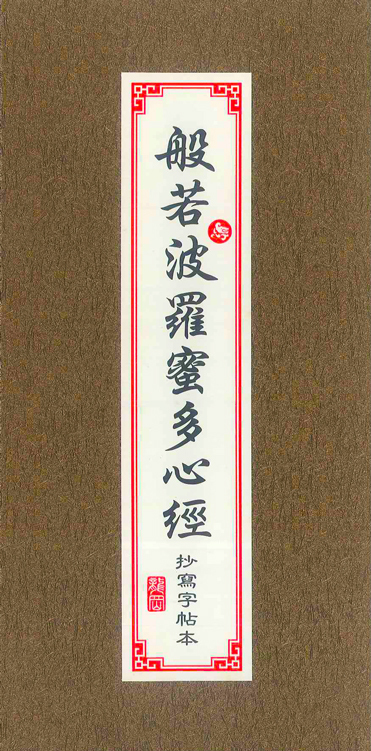 般若波羅蜜多心經
抄寫字帖本